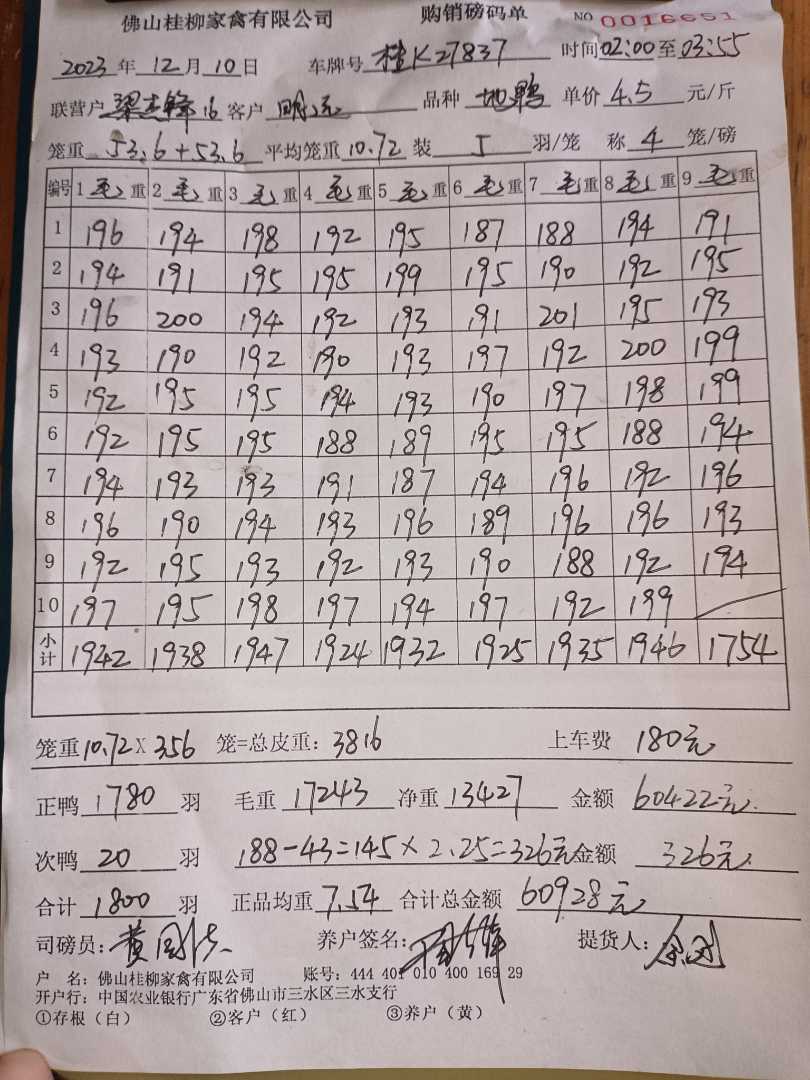 佛山桂柳家禽有限公司 购销磅码单 NO 0016651
2023年12月10日 车牌号 桂K27837 时间02:00至03:55
联营户 16 客户 品种 地鸭 单价 4.5 元/斤
笼重 53.6+53.6 平均笼重 10.72 装 5 羽/笼 称 4 笼/磅
编号 1毛重 2毛重 3毛重 4毛重 5毛重 6毛重 7毛重 8毛重 9毛重
1 196 194 198 192 195 187 188 194 191
2 194 191 195 195 199 195 190 192 195
3 196 200 194 192 193 191 201 195 193
4 193 190 192 190 193 197 192 200 199
5 192 195 195 194 193 190 197 198 199
6 192 195 195 188 189 195 195 188 194
7 194 193 193 191 187 194 196 192 196
8 196 190 194 193 196 189 196 196 193
9 192 195 193 192 193 190 188 192 194
10 197 195 198 197 194 197 192 199
小计 1942 1938 1947 1924 1932 1925 1935 1946 1754
笼重 10.72 X 356 笼=总皮重: 3816 上车费 180元
正鸭 1780 羽 毛重 17243 净重 13427 金额 60422元
次鸭 20 羽 188-43=145×2.25=326元 金额 326元
合计 1800 羽 正品均重 7.54 合计总金额 60928元
司磅员: 养户签名: 提货人:
户 名: 佛山桂柳家禽有限公司 账号: 444 401 010 400 169 29
开户行: 中国农业银行广东省佛山市三水区三水支行
①存根（白） ②客户（红） ③养户（黄）